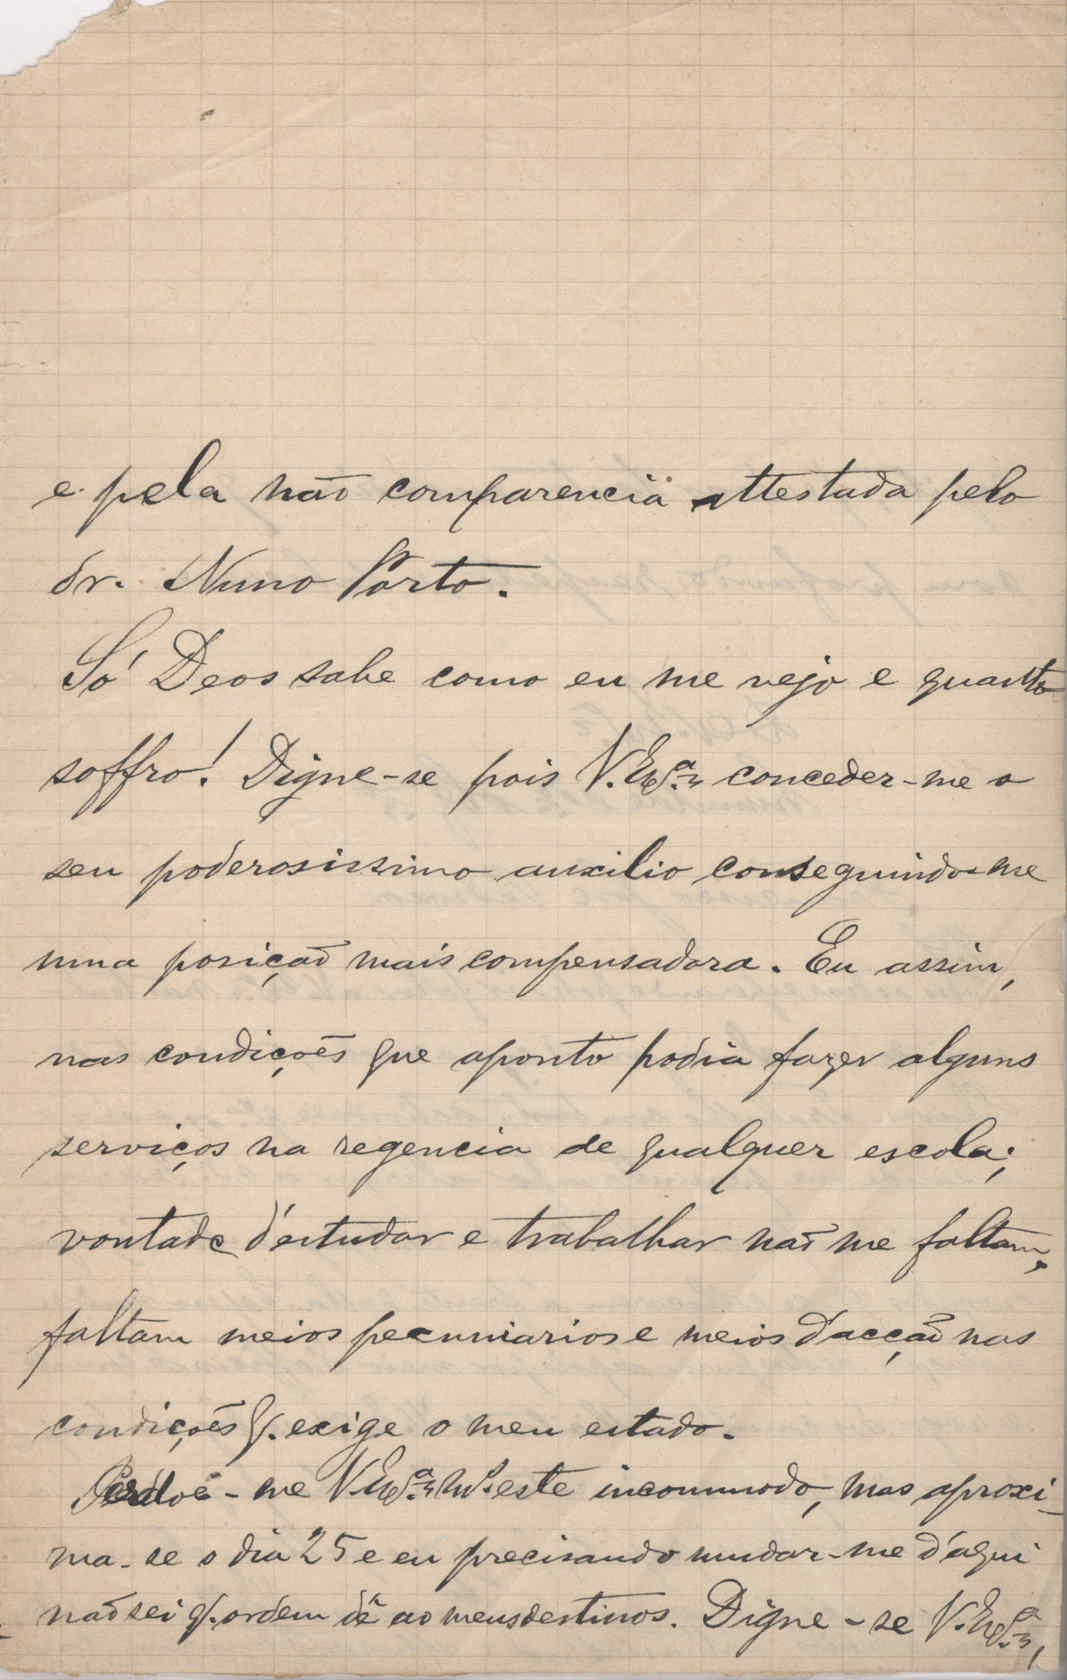 e pela não comparencia attestada pelo
dr. Nuno Porto.
Só Deos sabe como eu me vejo e quanto
soffro! Digne-se pois V. Exª conceder-me o
seu poderosissimo auxilio conseguindo-me
uma posição mais compensadora. Eu assim,
nas condições que aponto podia fazer alguns
serviços na regencia de qualquer escola;
vontade d'estudar e trabalhar não me faltam,
faltam meios pecuniarios e meios d'acção nas
condições q. exige o meu estado.
Perdoê-me V. Exª este incommodo, mas aproxi-
ma-se o dia 25 e eu precisando mudar-me d'aqui
não sei q. ordem dê ao meus destinos. Digne-se V. Exª,